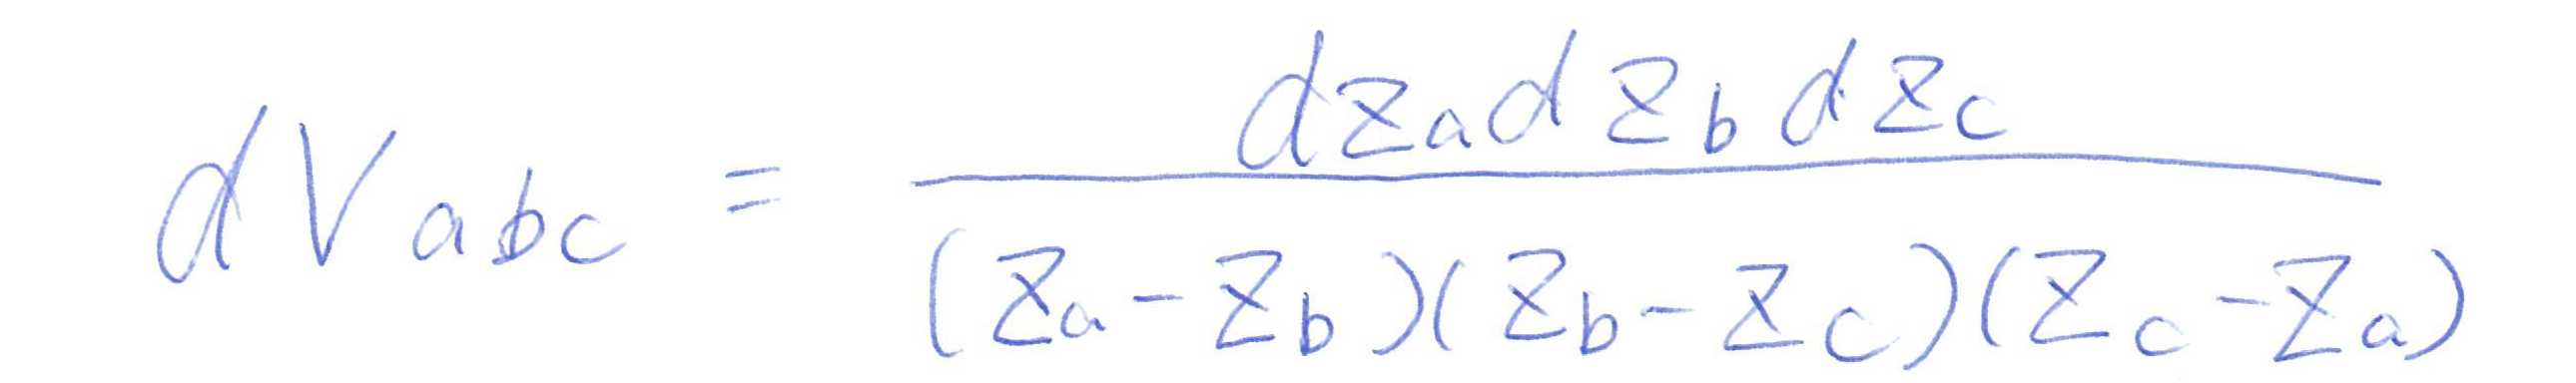 dV_{abc} = \frac{dz_a dz_b dz_c}{(z_a - z_b)(z_b - z_c)(z_c - z_a)}